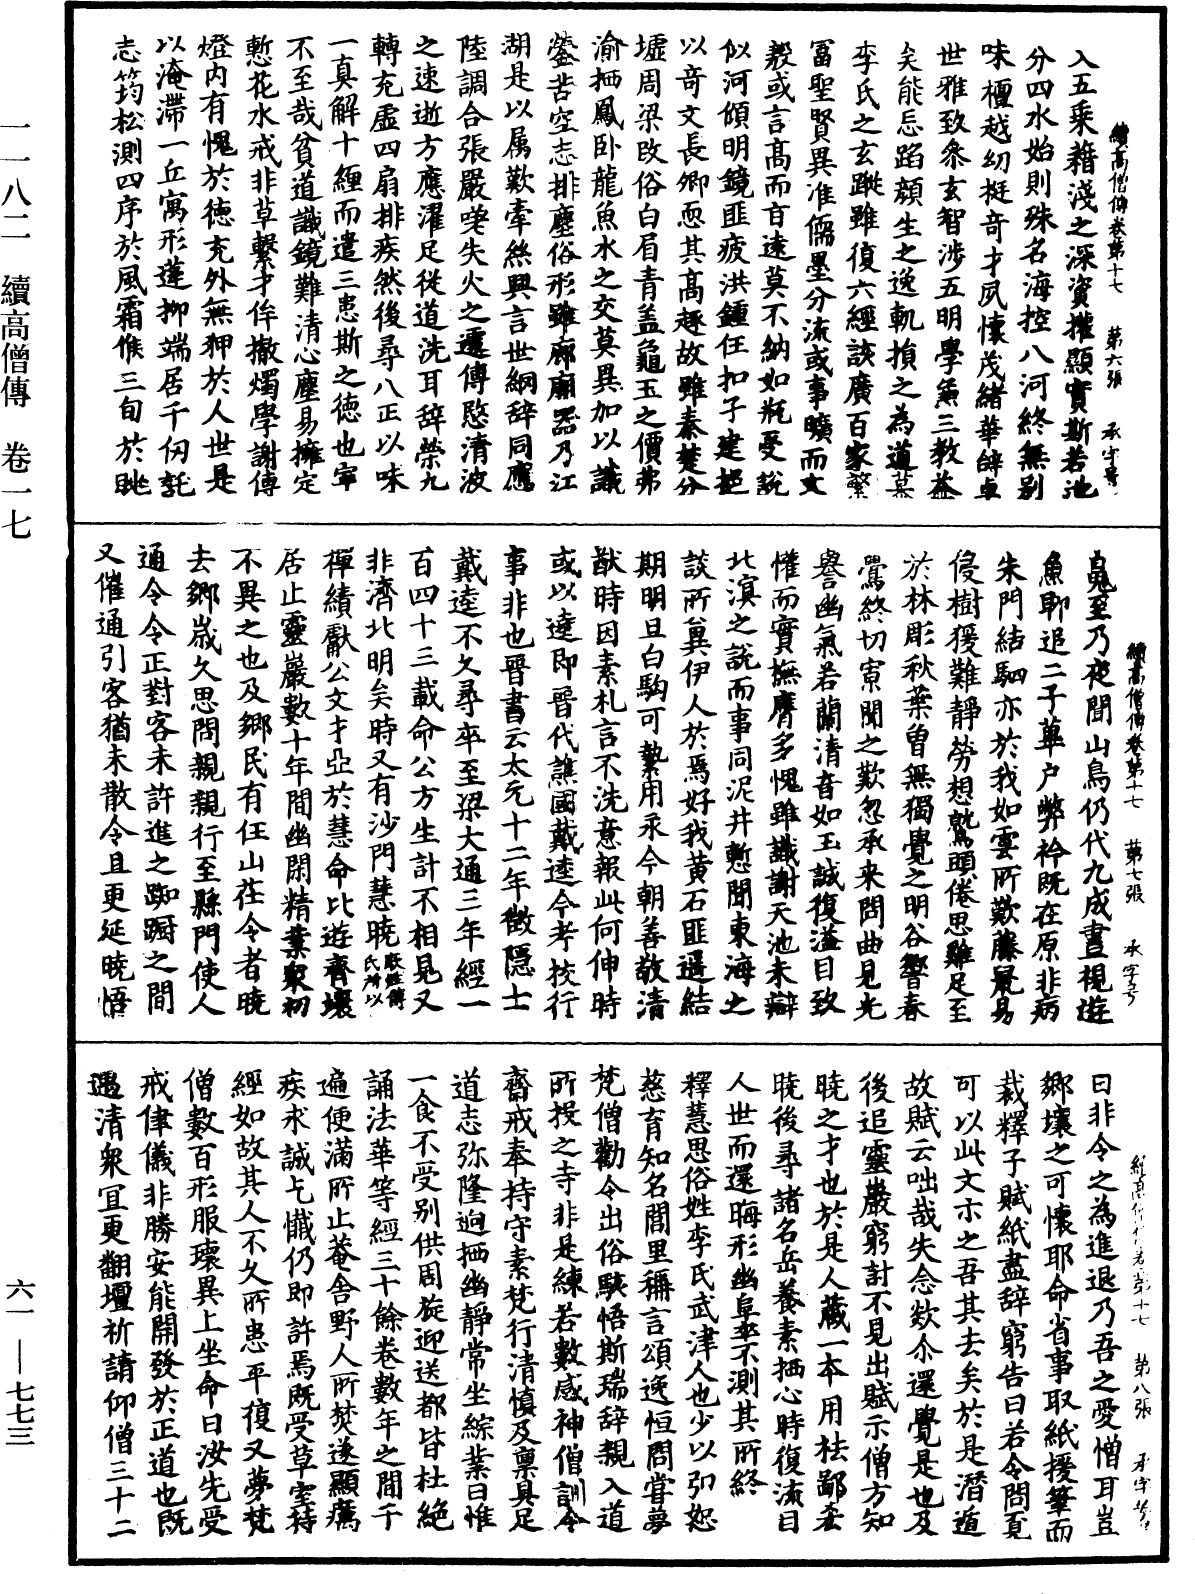 一一八二　續高僧傳　卷一七
六一—七七三
續高僧傳卷第十七　第六張　承字号
入五乘藉淺之深資權顯實斯若池
分四水始則殊名海控八河終無别
味檀越幼挺奇才夙懷茂緒華辭卓
世雅致叅玄智涉五明學兼三教益
矣能忘蹈顔生之逸軌損之為道慕
李氏之玄蹤雖復六經該廣百家繁
冨聖賢異准儒墨分流或事曠而文
殺或言髙而旨遠莫不納如瓶受說
似河傾明鏡匪疲洪鍾任扣子建挹
以奇文長卿恧其髙趣故雖秦楚分
墟周梁改俗白眉青盖龜玉之價弗
渝栖鳳卧龍魚水之交莫異加以識
鑒苦空志排塵俗形雖廊廟器乃江
湖是以属歎牽絲興言世網辞同應
陸調合張嚴嗟失火之遷傳愍清波
之速逝方應濯足從道洗耳辞榮九
轉充虛四扇排疾然後尋八正以味
一真解十纏而遣三患斯之徳也寧
不至哉貧道識鏡難清心塵易擁定
慙花水戒非草繫才侔撤燭學謝傳
燈内有愧於徳充外無狎於人世是
以淹滯一丘寓形蓬柳端居千仞託
志筠松測四序於風霜候三旬於眺
續高僧傳卷第十七　第七張　承字号
自冕至乃夜聞山鳥仍代九成晝視遊
魚聊追二子蓽户弊衿既在原非病
朱門結駟亦於我如雲所歎藤鼠易
侵樹猨難靜勞想鷲頭倦思雞足至
於林彫秋葉曽無獨覺之明谷響春
鸎終切寮聞之歎忽承来問曲見光
譽幽氣若蘭清音如玉誠復溢目致
懽而實撫膺多愧雖識謝天池未辯
北溟之說而事同泥井慙聞東海之
談所冀伊人於焉好我黄石匪遥結
期明旦白駒可縶用永今朝善敬清
猷時因素札言不洗意報此何伸時
或以逵即晉代譙國戴逵今考校行
事非也晉書云太元十二年徵隱士
戴逵不久尋卒至梁大通三年經一
百四十三載命公方生計不相見又
非濟北明矣時又有沙門慧曉既姓傅氏所以
禪績獻公文才亞於慧命比遊齊壤
居止靈巖數十年間幽閑精業衆初
不異之也及鄉民有任山茌令者曉
去鄉歲久思問親親行至縣門使人
通令令正對客未許進之踟蹰之間
又催通引客猶未散令且更延曉悟
續高僧傳卷第十七　第八張　承字号
曰非令之為進退乃吾之愛憎耳豈
鄉壤之可懷耶命省事取紙援筆而
裁釋子賦紙盡辞窮告曰若令問覓
可以此文示之吾其去矣於是潛遁
故賦云咄哉失念欻尒還覺是也及
後追靈巖窮討不見出賦示僧方知
曉之才也於是人藏一本用祛鄙吝
曉後尋諸名岳養素栖心時復流目
人世而還晦形幽阜卒不測其所終
釋慧思俗姓李氏武津人也少以弘恕
慈育知名閭里稱言頌逸恒問嘗夢
梵僧勸令出俗駭悟斯瑞辞親入道
所投之寺非是練若數感神僧訓令
齋戒奉持守素梵行清慎及禀具足
道志弥隆迥栖幽靜常坐綜業日惟
一食不受别供周旋迎送都皆杜絶
誦法華等經三十餘卷數年之間千
遍便滿所止菴舍野人所焚遂顯癘
疾求誠乞懺仍即許焉既受草室持
經如故其人不久所患平復又夢梵
僧數百形服瓌異上坐命曰汝先受
戒律儀非勝安能開發於正道也既
遇清衆宜更翻壇祈請仰僧三十二